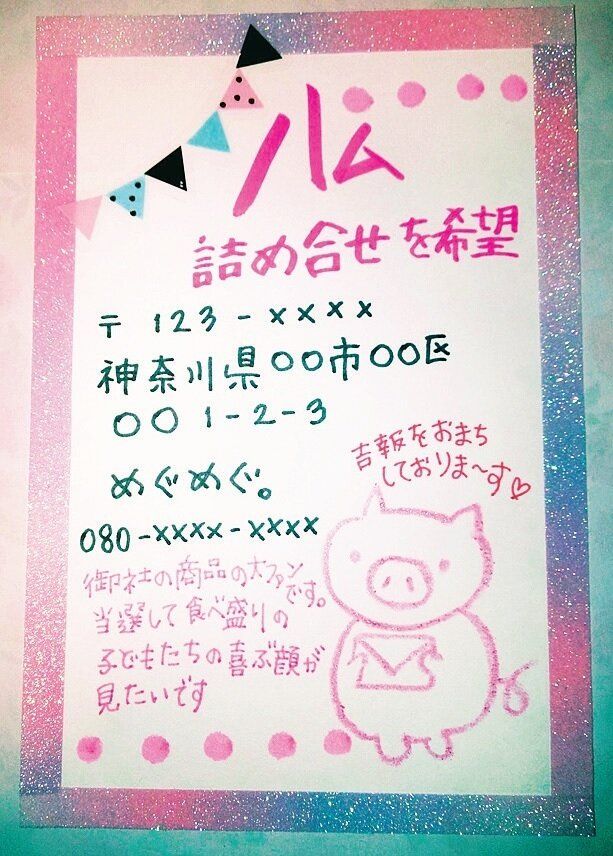 ハム
詰め合せを希望
〒 123-××××
神奈川県○○市○○区
○○ 1-2-3
めぐめぐ。
080-××××-××××
吉報をおまち
しておりま〜す♡
御社の商品の大ファン
です。
当選して食べ盛りの
子どもたちの喜ぶ顔が
見たいです